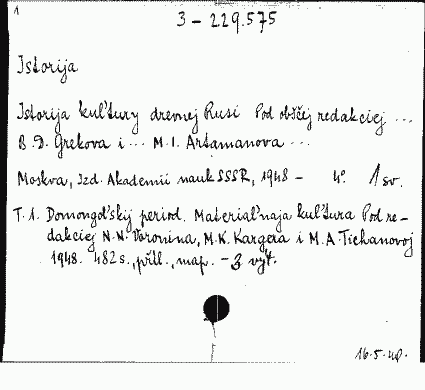 1
3 - 229.575
Istorija
Istorija kul'tury drevnej Rusi Pod obščej redakciej ...
B. D. Grekova i ... M. I. Artamanova ...
Moskva, Izd. Akademii nauk SSSR, 1948 - 4°. 1 sv.
T. 1. Domongol'skij period. Material'naja kul'tura Pod re-
dakciej N. N. Voronina, M. K. Kargera i M. A. Tichanovoj
1948. 482 s., příl., map. - 3 výt.
16.5.48.